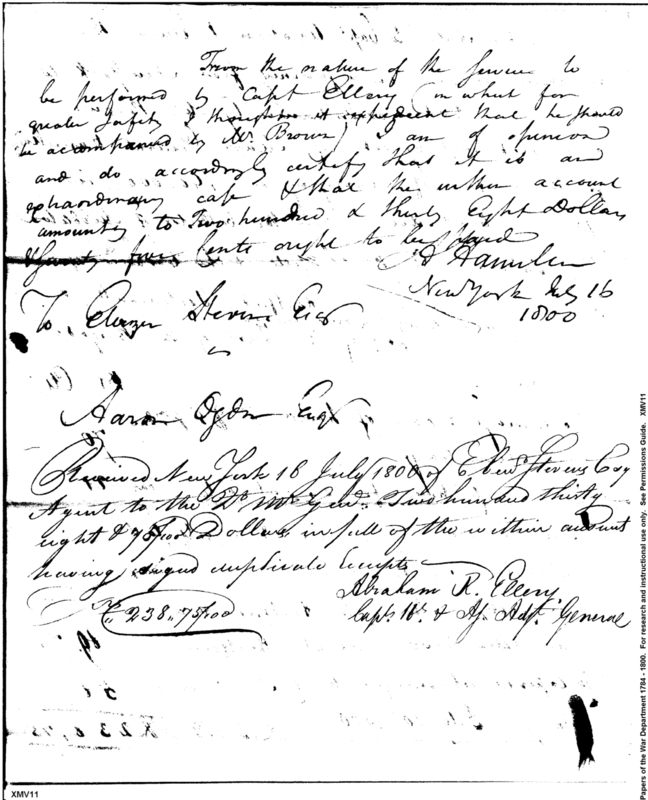 From the nature of the service to
be performed by Capt Ellery (in which for
greater safety I thought it expedient that he should
be accompanied by Mr Brown) I am of opinion
and do accordingly certify that it is an
extraordinary case & that the within account
amounting to Two hundred & thirty Eight Dollars
& Seventy five Cents ought to be paid
A Hamilton
New York July 16
1800
To Ebenezer Stevens Esqr
Aaron Ogden Esqr
Received New York 16 July 1800 of Ebenr Stevens Esq
Agent to the Qr Mr Genl. Two hund thirty
eight & 75/100 Dollars in full of the within account
having signed duplicate Receipts
Abraham R. Ellery
238,,75/100
Capt. & As. Adjt. General
XMV11
Papers of the War Department 1784 - 1800. For research and instructional use only. See Permissions Guide. XMV11